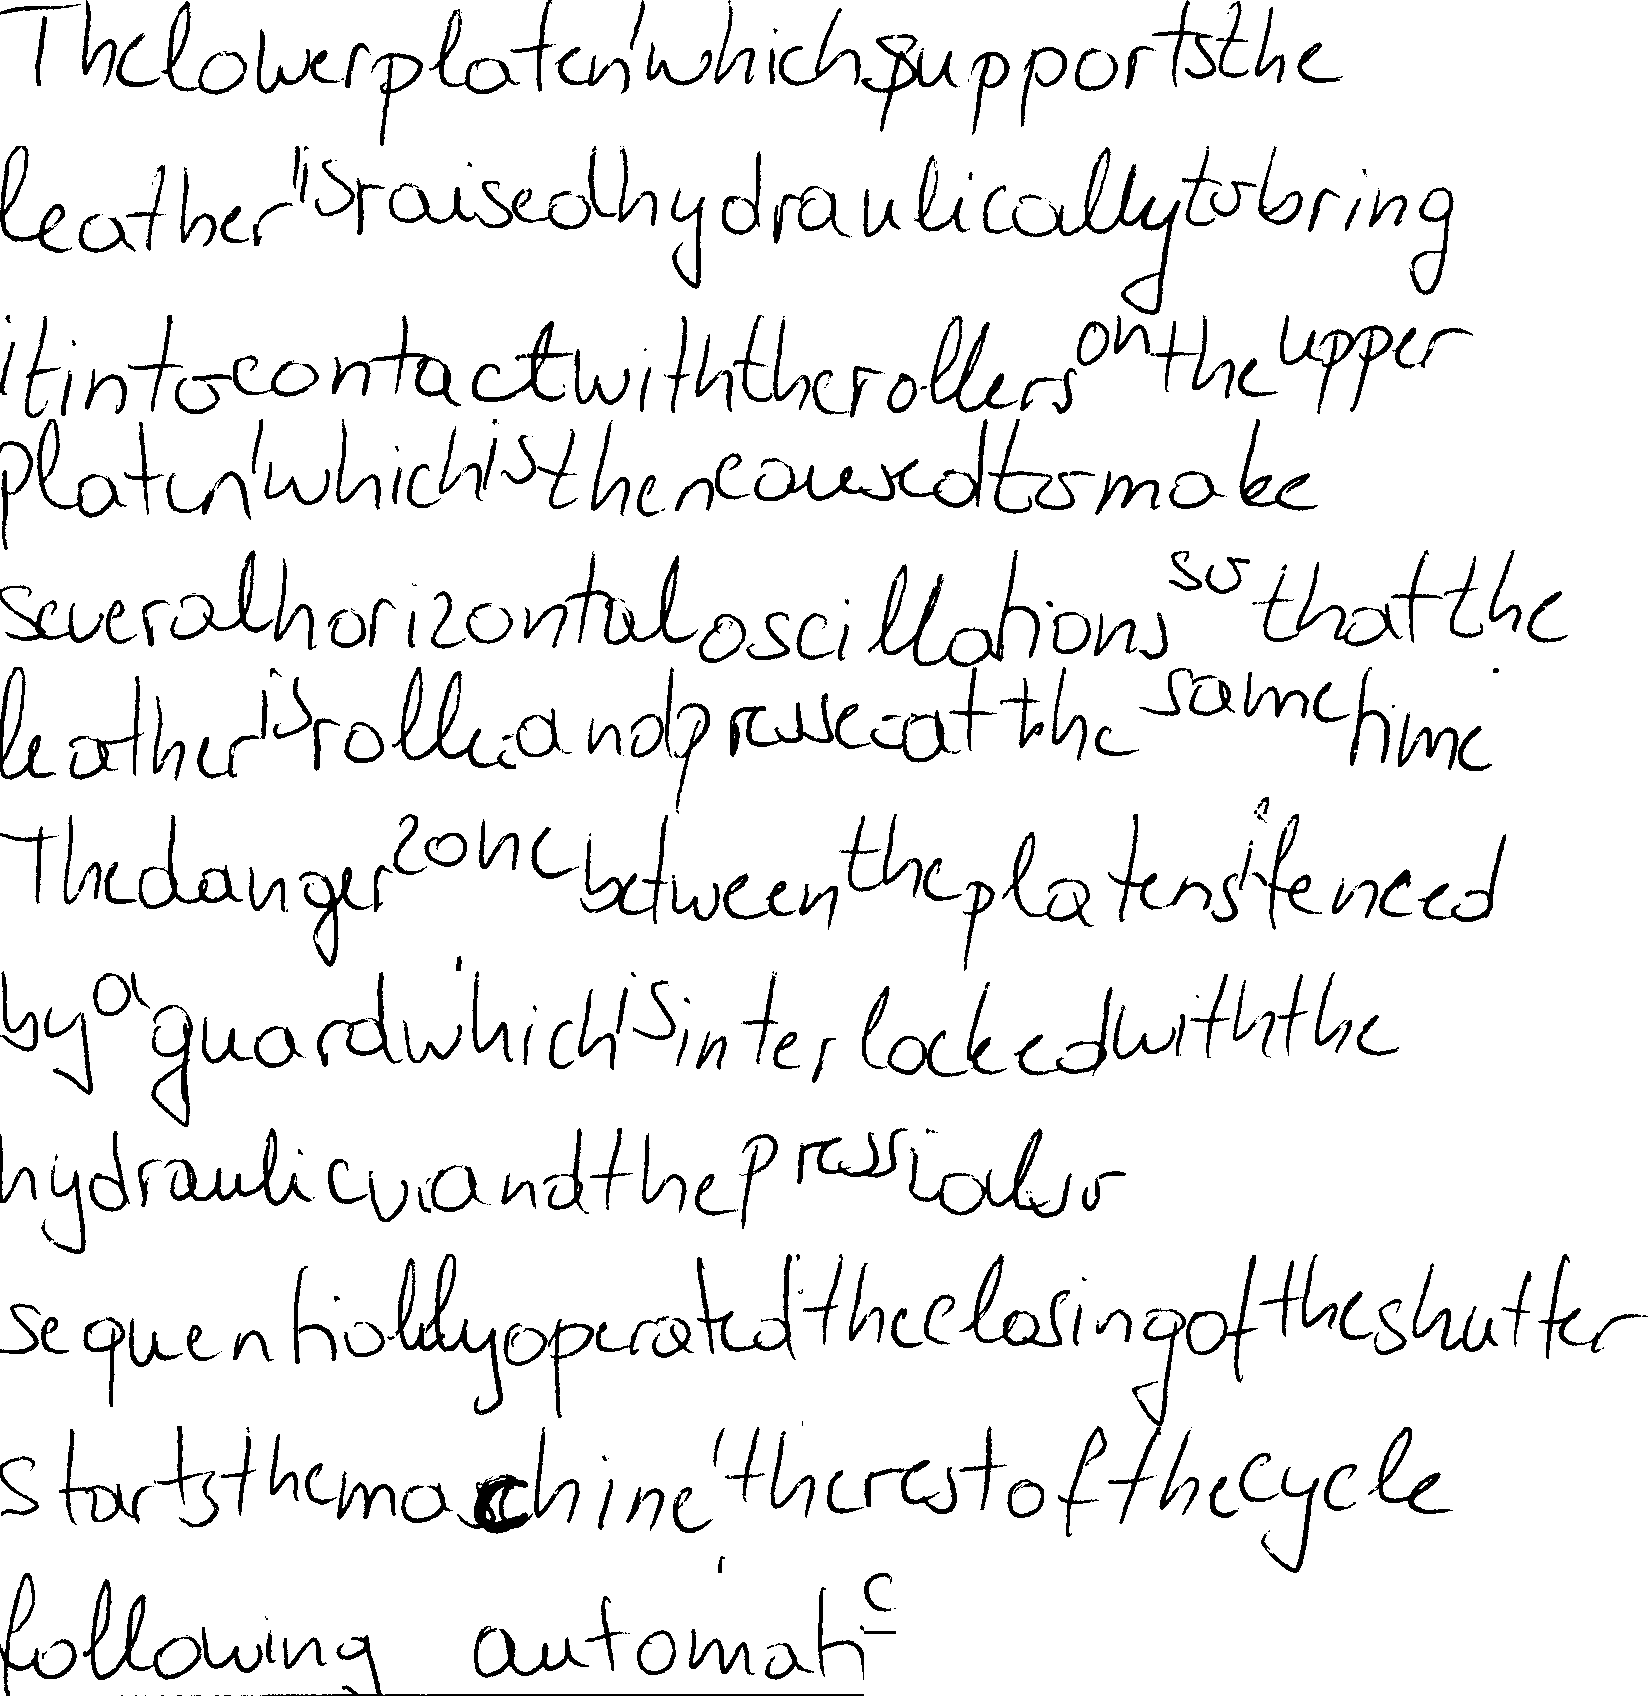 The lower platen, which supports the
leather, is raised hydraulically to bring
it into contact with the rollers on the upper
platen, which is then caused to make
several horizontal oscillations so that the
leather is rolled and pressed at the same time.
The danger zone between the platens is fenced
by a guard which is interlocked with the
hydraulic and the press is also
sequentially operated the closing of the shutter
starts the machine, the rest of the cycle
following automatic